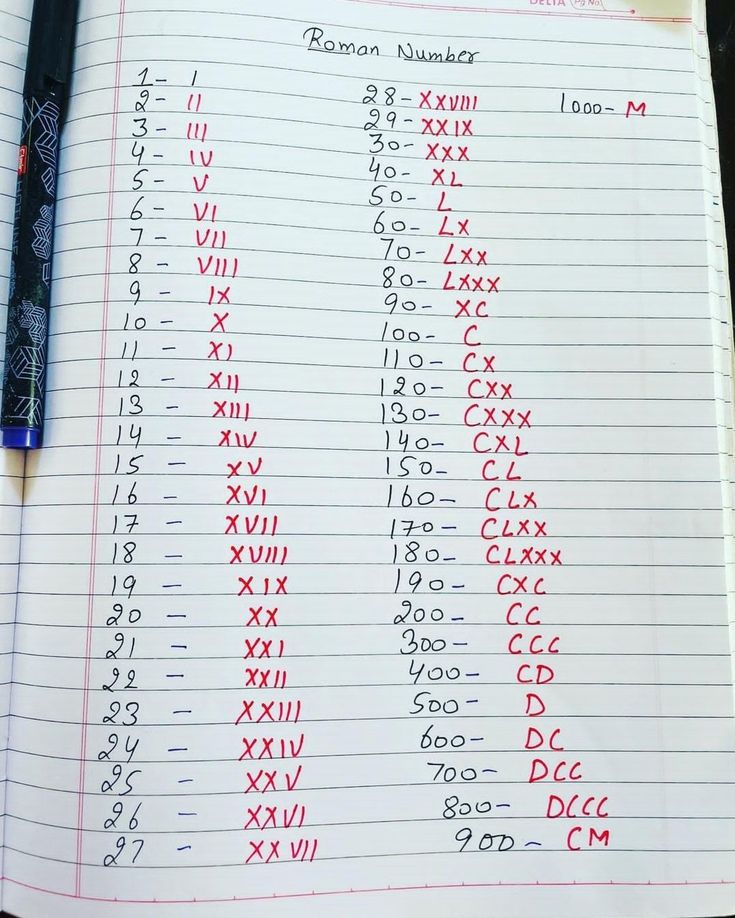 DELTA Pg No.
Roman Number
1 - I
2 - II
3 - III
4 - IV
5 - V
6 - VI
7 - VII
8 - VIII
9 - IX
10 - X
11 - XI
12 - XII
13 - XIII
14 - XIV
15 - XV
16 - XVI
17 - XVII
18 - XVIII
19 - XIX
20 - XX
21 - XXI
22 - XXII
23 - XXIII
24 - XXIV
25 - XXV
26 - XXVI
27 - XXVII
28 - XXVIII
29 - XXIX
30 - XXX
40 - XL
50 - L
60 - LX
70 - LXX
80 - LXXX
90 - XC
100 - C
110 - CX
120 - CXX
130 - CXXX
140 - CXL
150 - CL
160 - CLX
170 - CLXX
180 - CLXXX
190 - CXC
200 - CC
300 - CCC
400 - CD
500 - D
600 - DC
700 - DCC
800 - DCCC
900 - CM
1000 - M